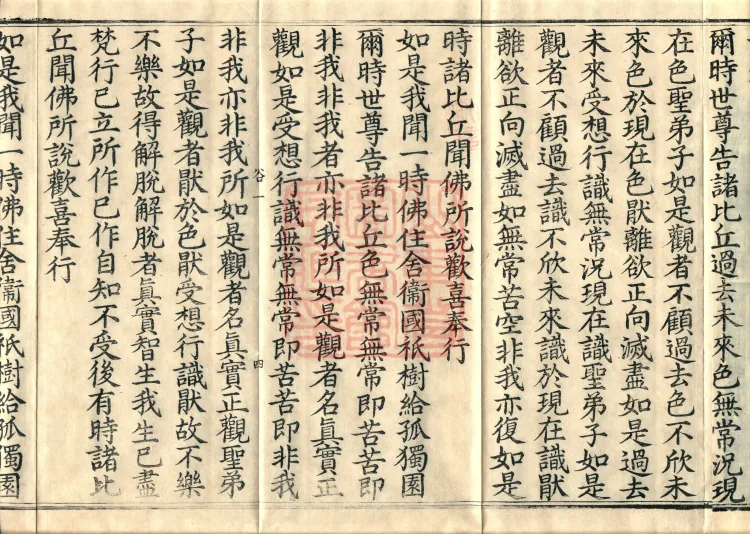 爾時世尊告諸比丘過去未來色無常況現
在色聖弟子如是觀者不顧過去色不欣未
來色於現在色厭離欲正向滅盡如是過去
未來受想行識無常況現在識聖弟子如是
觀者不顧過去識不欣未來識於現在識厭
離欲正向滅盡如無常苦空非我亦復如是
時諸比丘聞佛所說歡喜奉行
如是我聞一時佛住舍衞國祇樹給孤獨園
爾時世尊告諸比丘色無常無常即苦苦即
非我非我者亦非我所如是觀者名眞實正
觀如是受想行識無常無常即苦苦即非我
谷一 四
非我亦非我所如是觀者名眞實正觀聖弟
子如是觀者厭於色厭受想行識厭故不樂
不樂故得解脫解脫者眞實智生我生已盡
梵行已立所作已作自知不受後有時諸比
丘聞佛所說歡喜奉行
如是我聞一時佛住舍衞國祇樹給孤獨園